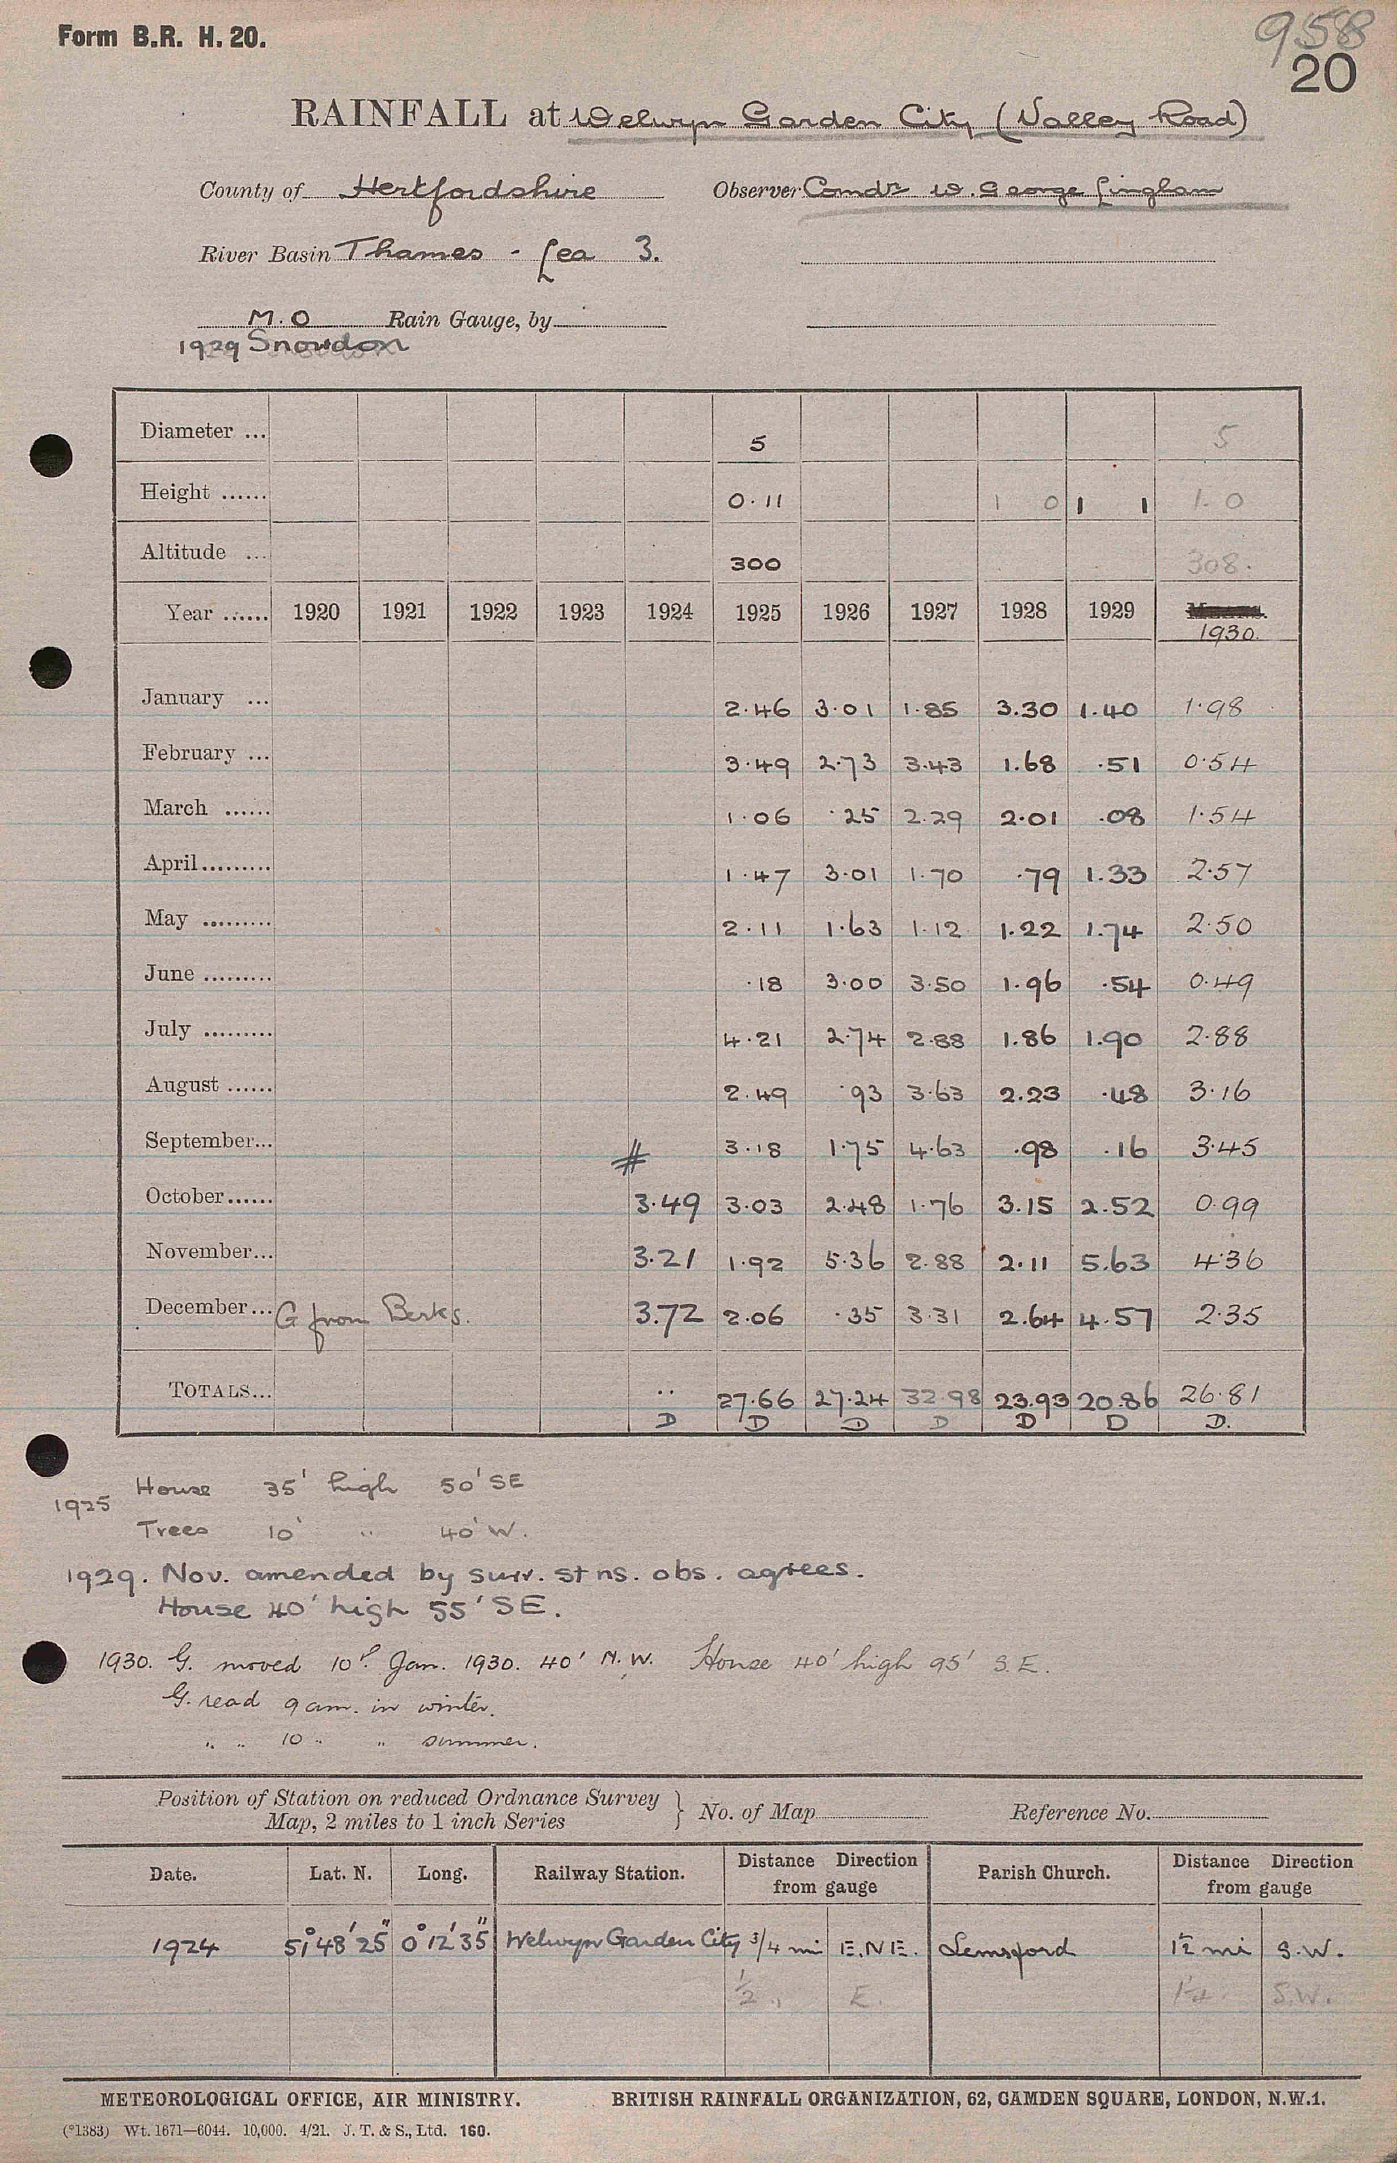 Form B.R. H. 20.
958
20
RAINFALL at Welwyn Garden City (Valley Road)
County of Hertfordshire Observer Comdr W. George Lingham
River Basin Thames - Lea 3.
M.O Rain Gauge, by
1929 Snowdon
Diameter ... 5 5
Height ...... 0.11 1 0 1 1 1.0
Altitude ... 300 308.
Year ...... 1920 1921 1922 1923 1924 1925 1926 1927 1928 1929 1930.
January ... 2.46 3.01 1.85 3.30 1.40 1.98
February ... 3.49 2.73 3.43 1.68 .51 0.54
March ...... 1.06 .25 2.29 2.01 .08 1.54
April ......... 1.47 3.01 1.70 .79 1.33 2.57
May ......... 2.11 1.63 1.12 1.22 1.74 2.50
June ......... .18 3.00 3.50 1.96 .54 0.49
July ......... 4.21 2.74 2.88 1.86 1.90 2.88
August ...... 2.49 .93 3.63 2.23 .48 3.16
September... # 3.18 1.75 4.63 .98 .16 3.45
October...... 3.49 3.03 2.48 1.76 3.15 2.52 0.99
November... 3.21 1.92 5.36 2.88 2.11 5.63 4.36
December... G from Berks. 3.72 2.06 .35 3.31 2.64 4.57 2.35
TOTALS... .. 27.66 27.24 32.98 23.93 20.86 26.81
D D D D D D D.
1925 House 35' high 50' SE
Trees 10' " 40' W.
1929. Nov. amended by surr. stns. obs. agrees.
House 40' high 55' SE.
1930. G. moved 10th Jan. 1930. 40' N.W. House 40' high 95' S.E.
G. read 9 am. in winter.
" " 10 " " summer.
Position of Station on reduced Ordnance Survey
Map, 2 miles to 1 inch Series } No. of Map Reference No.
Date. Lat. N. Long. Railway Station. Distance Direction from gauge Parish Church. Distance Direction from gauge
1924 51° 48' 25" 0° 12' 35" Welwyn Garden City 3/4 mi E.N.E. Lemsford 1½ mi S.W.
½ " E. 1¼ . S.W.
METEOROLOGICAL OFFICE, AIR MINISTRY. BRITISH RAINFALL ORGANIZATION, 62, CAMDEN SQUARE, LONDON, N.W.1.
(*1383) Wt. 1671—6044. 10,000. 4/21. J. T. & S., Ltd. 160.